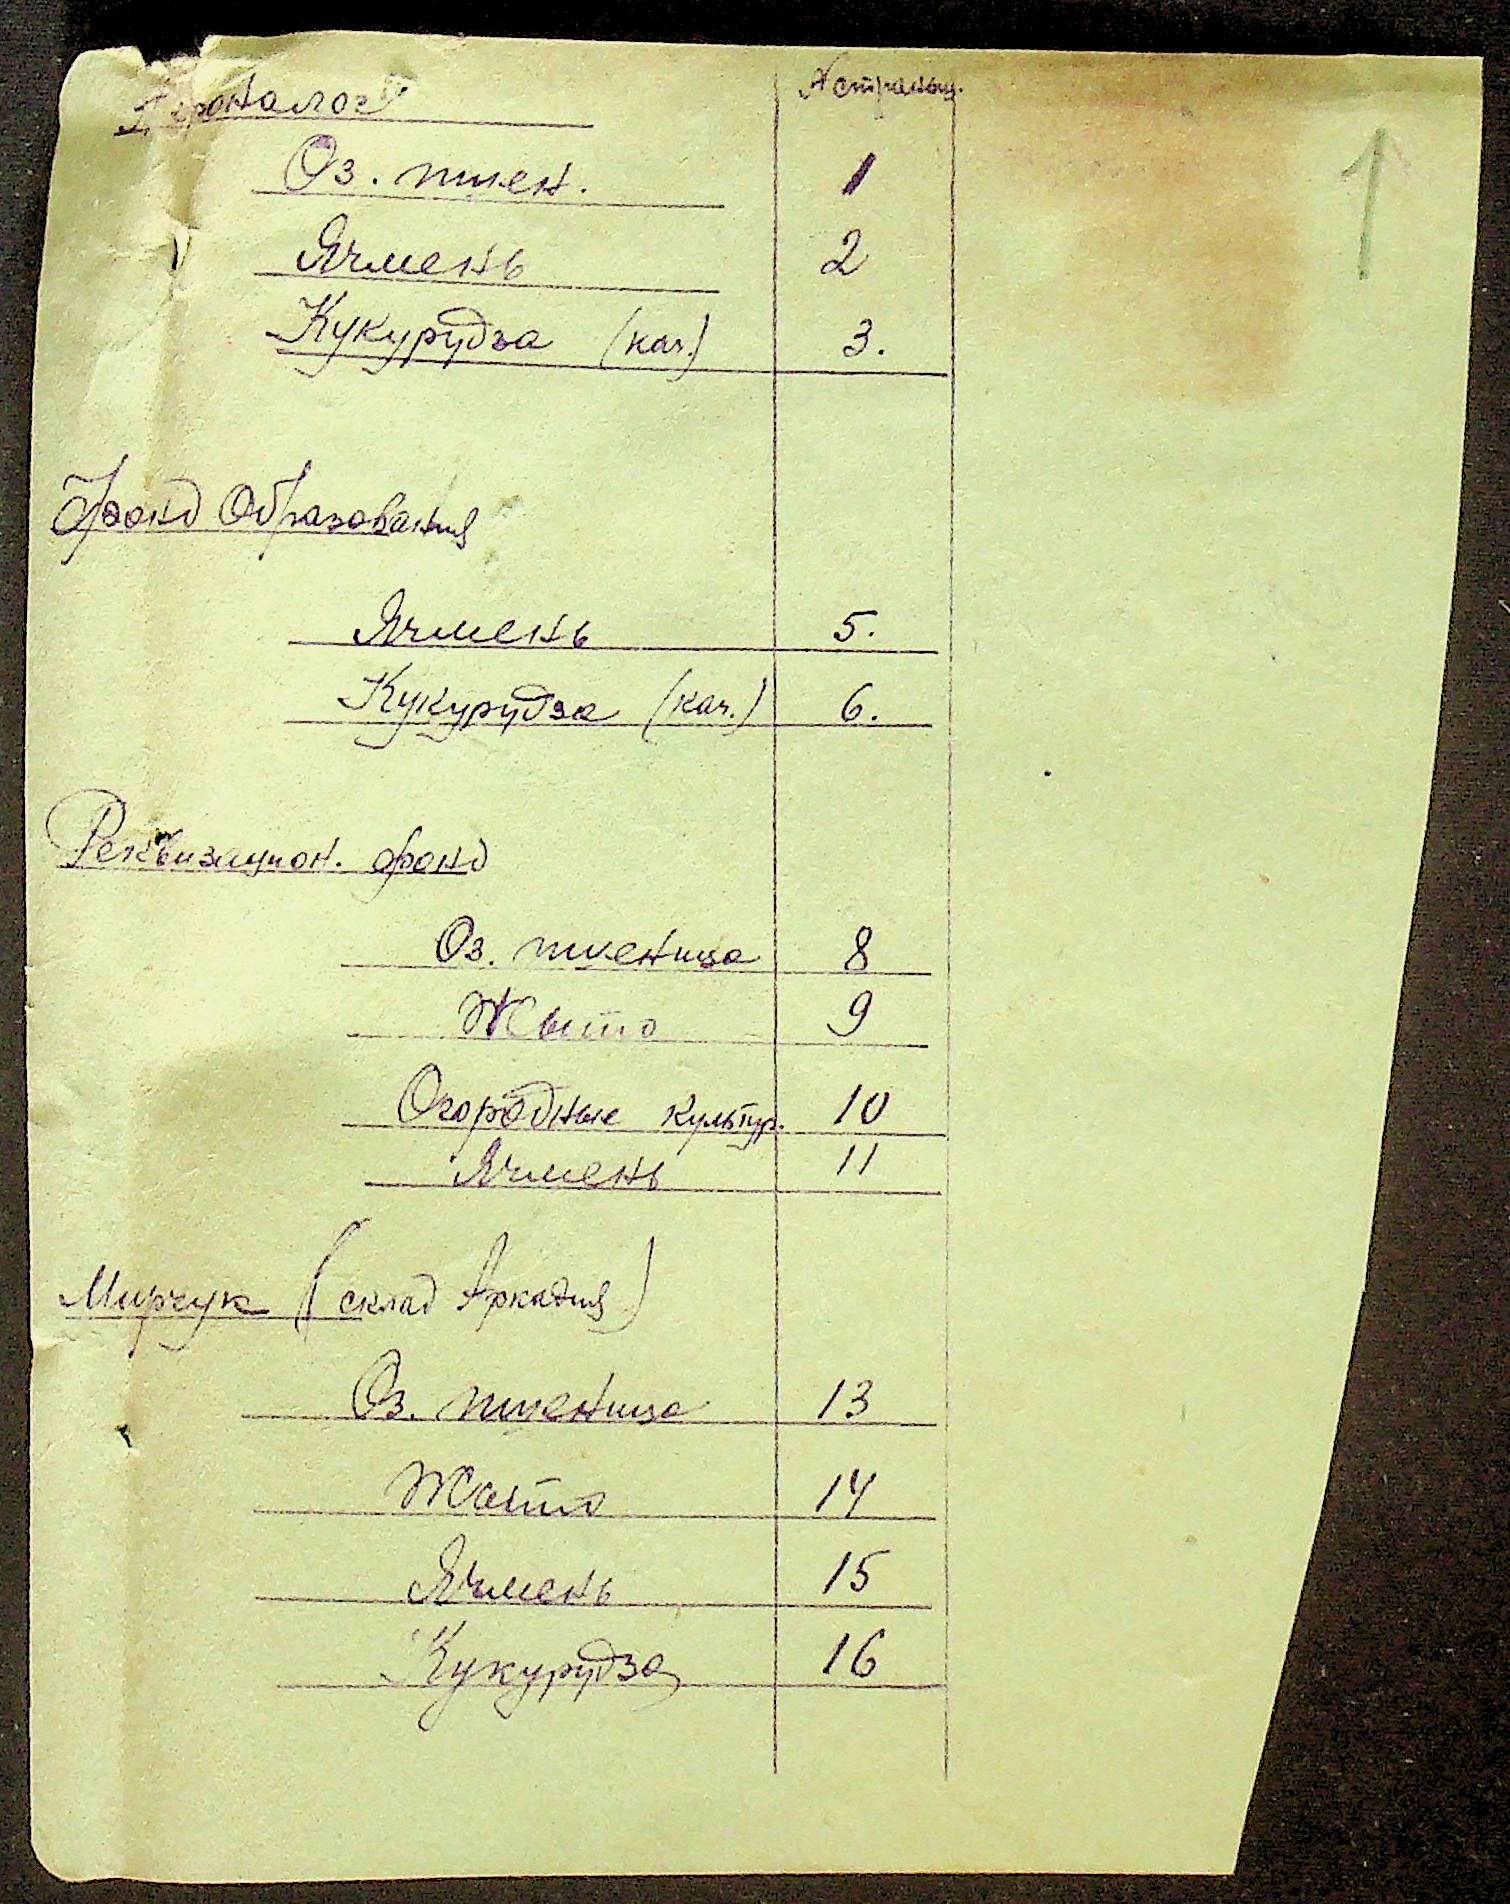 Агроналог № страниц.
Оз. пшен. 1
1
Ячмень 2
Кукурудза (кач.) 3.
Фонд Образования
Ячмень 5.
Кукурудза (кач.) 6.
Реквизацион. фонд
Оз. пшеница 8
Жыто 9
Огородные культур. 10
Ячмень 11
Мирчук (склад Аркадия)
Оз. пшеница 13
Жыто 14
Ячмень 15
Кукурудза 16